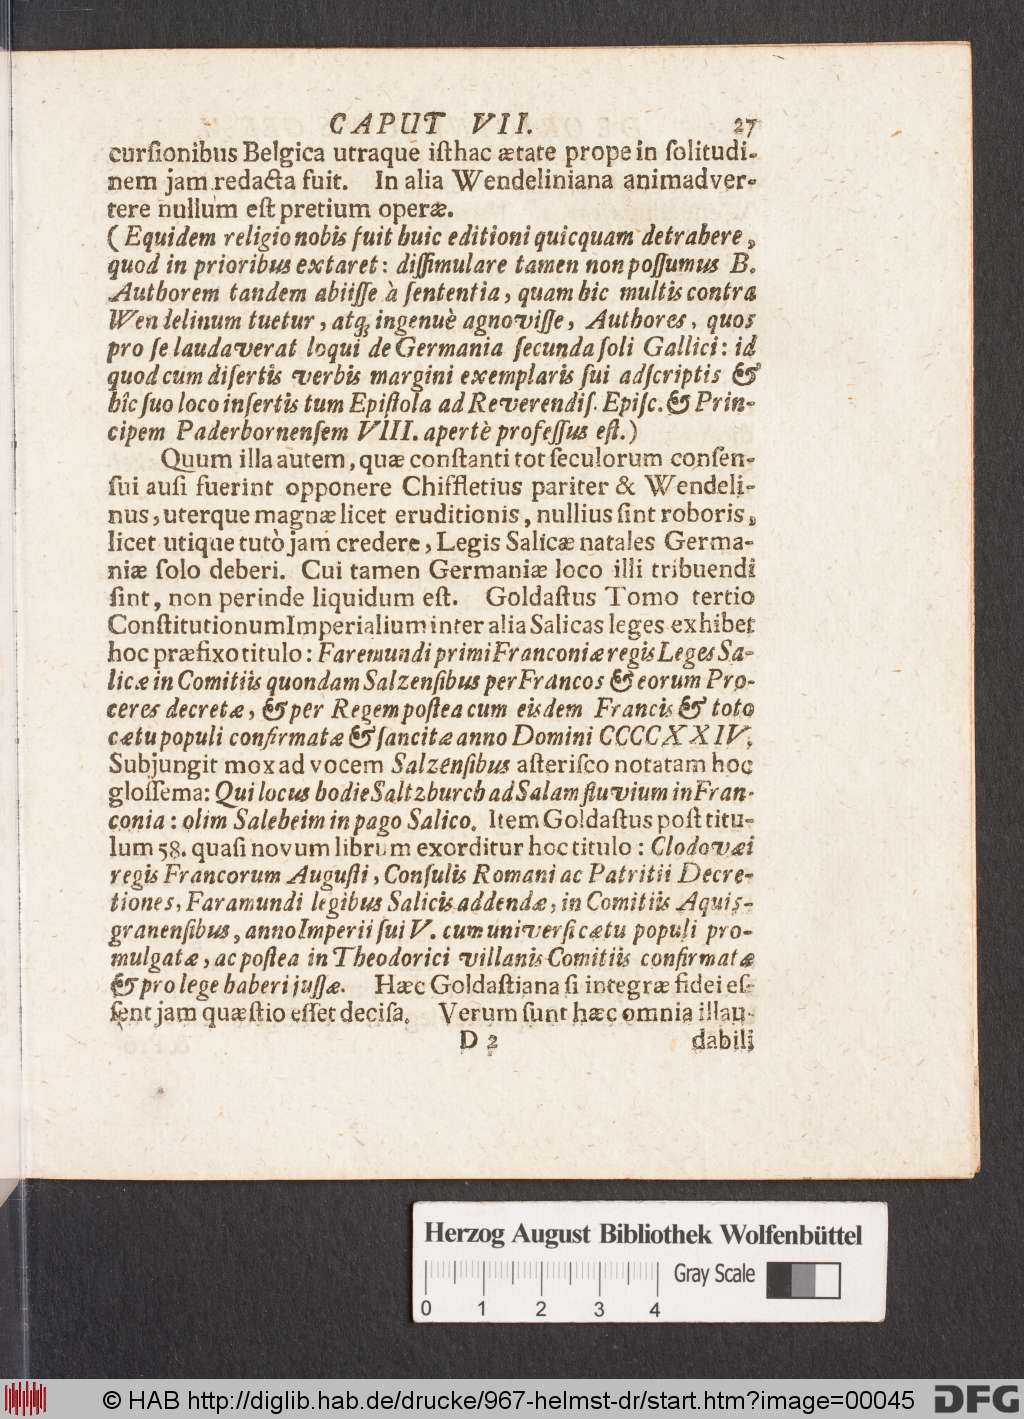 CAPUT VII. 27
cursionibus Belgica utraque isthac ætate prope in solitudi-
nem jam redacta fuit. In alia Wendeliniana animadver-
tere nullum est pretium operæ.
(Equidem religio nobis fuit huic editioni quicquam detrahere,
quod in prioribus extaret: dissimulare tamen non possumus B.
Authorem tandem abiisse à sententia, quam hic multis contra
Wendelinum tuetur, atq; ingenuè agnovisse, Authores, quos
pro se laudaverat loqui de Germania secunda soli Gallici: id
quod cum disertis verbis margini exemplaris sui adscriptis &
hîc suo loco insertis tum Epistola ad Reverendis. Episc. & Prin-
cipem Paderbornensem VIII. apertè professus est.)
Quum illa autem, quæ constanti tot seculorum consen-
sui ausi fuerint opponere Chiffletius pariter & Wendeli-
nus, uterque magnæ licet eruditionis, nullius sint roboris,
licet utique tutò jam credere, Legis Salicæ natales Germa-
niæ solo deberi. Cui tamen Germaniæ loco illi tribuendi
sint, non perinde liquidum est. Goldastus Tomo tertio
Constitutionum Imperialium inter alia Salicas leges exhibet
hoc præfixo titulo: Faremundi primi Franconiæ regis Leges Sa-
licæ in Comitiis quondam Salzensibus per Francos & eorum Pro-
ceres decretæ, & per Regem postea cum eisdem Francis & toto
cætu populi confirmatæ & sancitæ anno Domini CCCCXXIV.
Subjungit mox ad vocem Salzensibus asterisco notatam hoc
glossema: Qui locus hodie Saltzburch ad Salam fluvium in Fran-
conia: olim Saleheim in pago Salico. Item Goldastus post titu-
lum 58. quasi novum librum exorditur hoc titulo: Clodovæi
regis Francorum Augusti, Consulis Romani ac Patritii Decre-
tiones, Faramundi legibus Salicis addendæ, in Comitiis Aquis-
granensibus, anno Imperii sui V. cum universi cætu populi pro-
mulgatæ, ac postea in Theodorici villanis Comitiis confirmatæ
& pro lege haberi jussæ. Hæc Goldastiana si integræ fidei es-
sent jam quæstio esset decisa. Verum sunt hæc omnia illau-
D 2 dabili
Herzog August Bibliothek Wolfenbüttel
Gray Scale
0 1 2 3 4
© HAB http://diglib.hab.de/drucke/967-helmst-dr/start.htm?image=00045 DFG